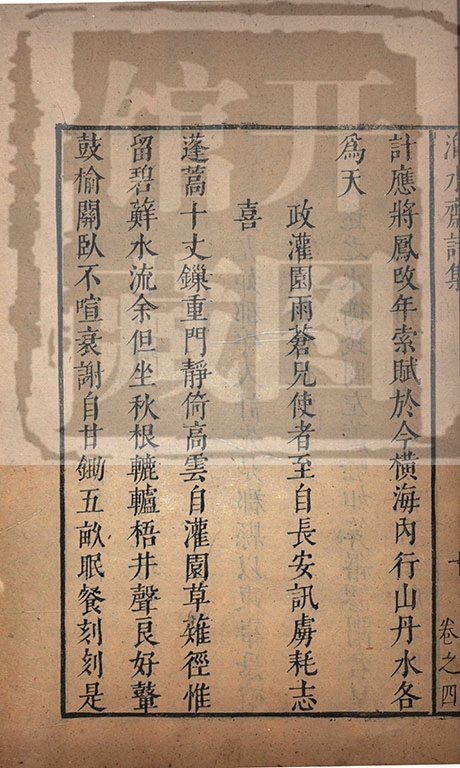 計應將鳳攺年索賦於今橫海內行山丹水各
爲天
政灌園雨蒼兄使者至自長安訊虜耗志
喜
蓬蒿十丈鏁重門靜倚高雲自灌園草薙徑惟
留碧蘚水流余但坐秋根轆轤梧井聲良好鼙
鼓榆關臥不喧衰謝自甘鋤五畝眠餐刻刻是
水齋詩集
卷之四